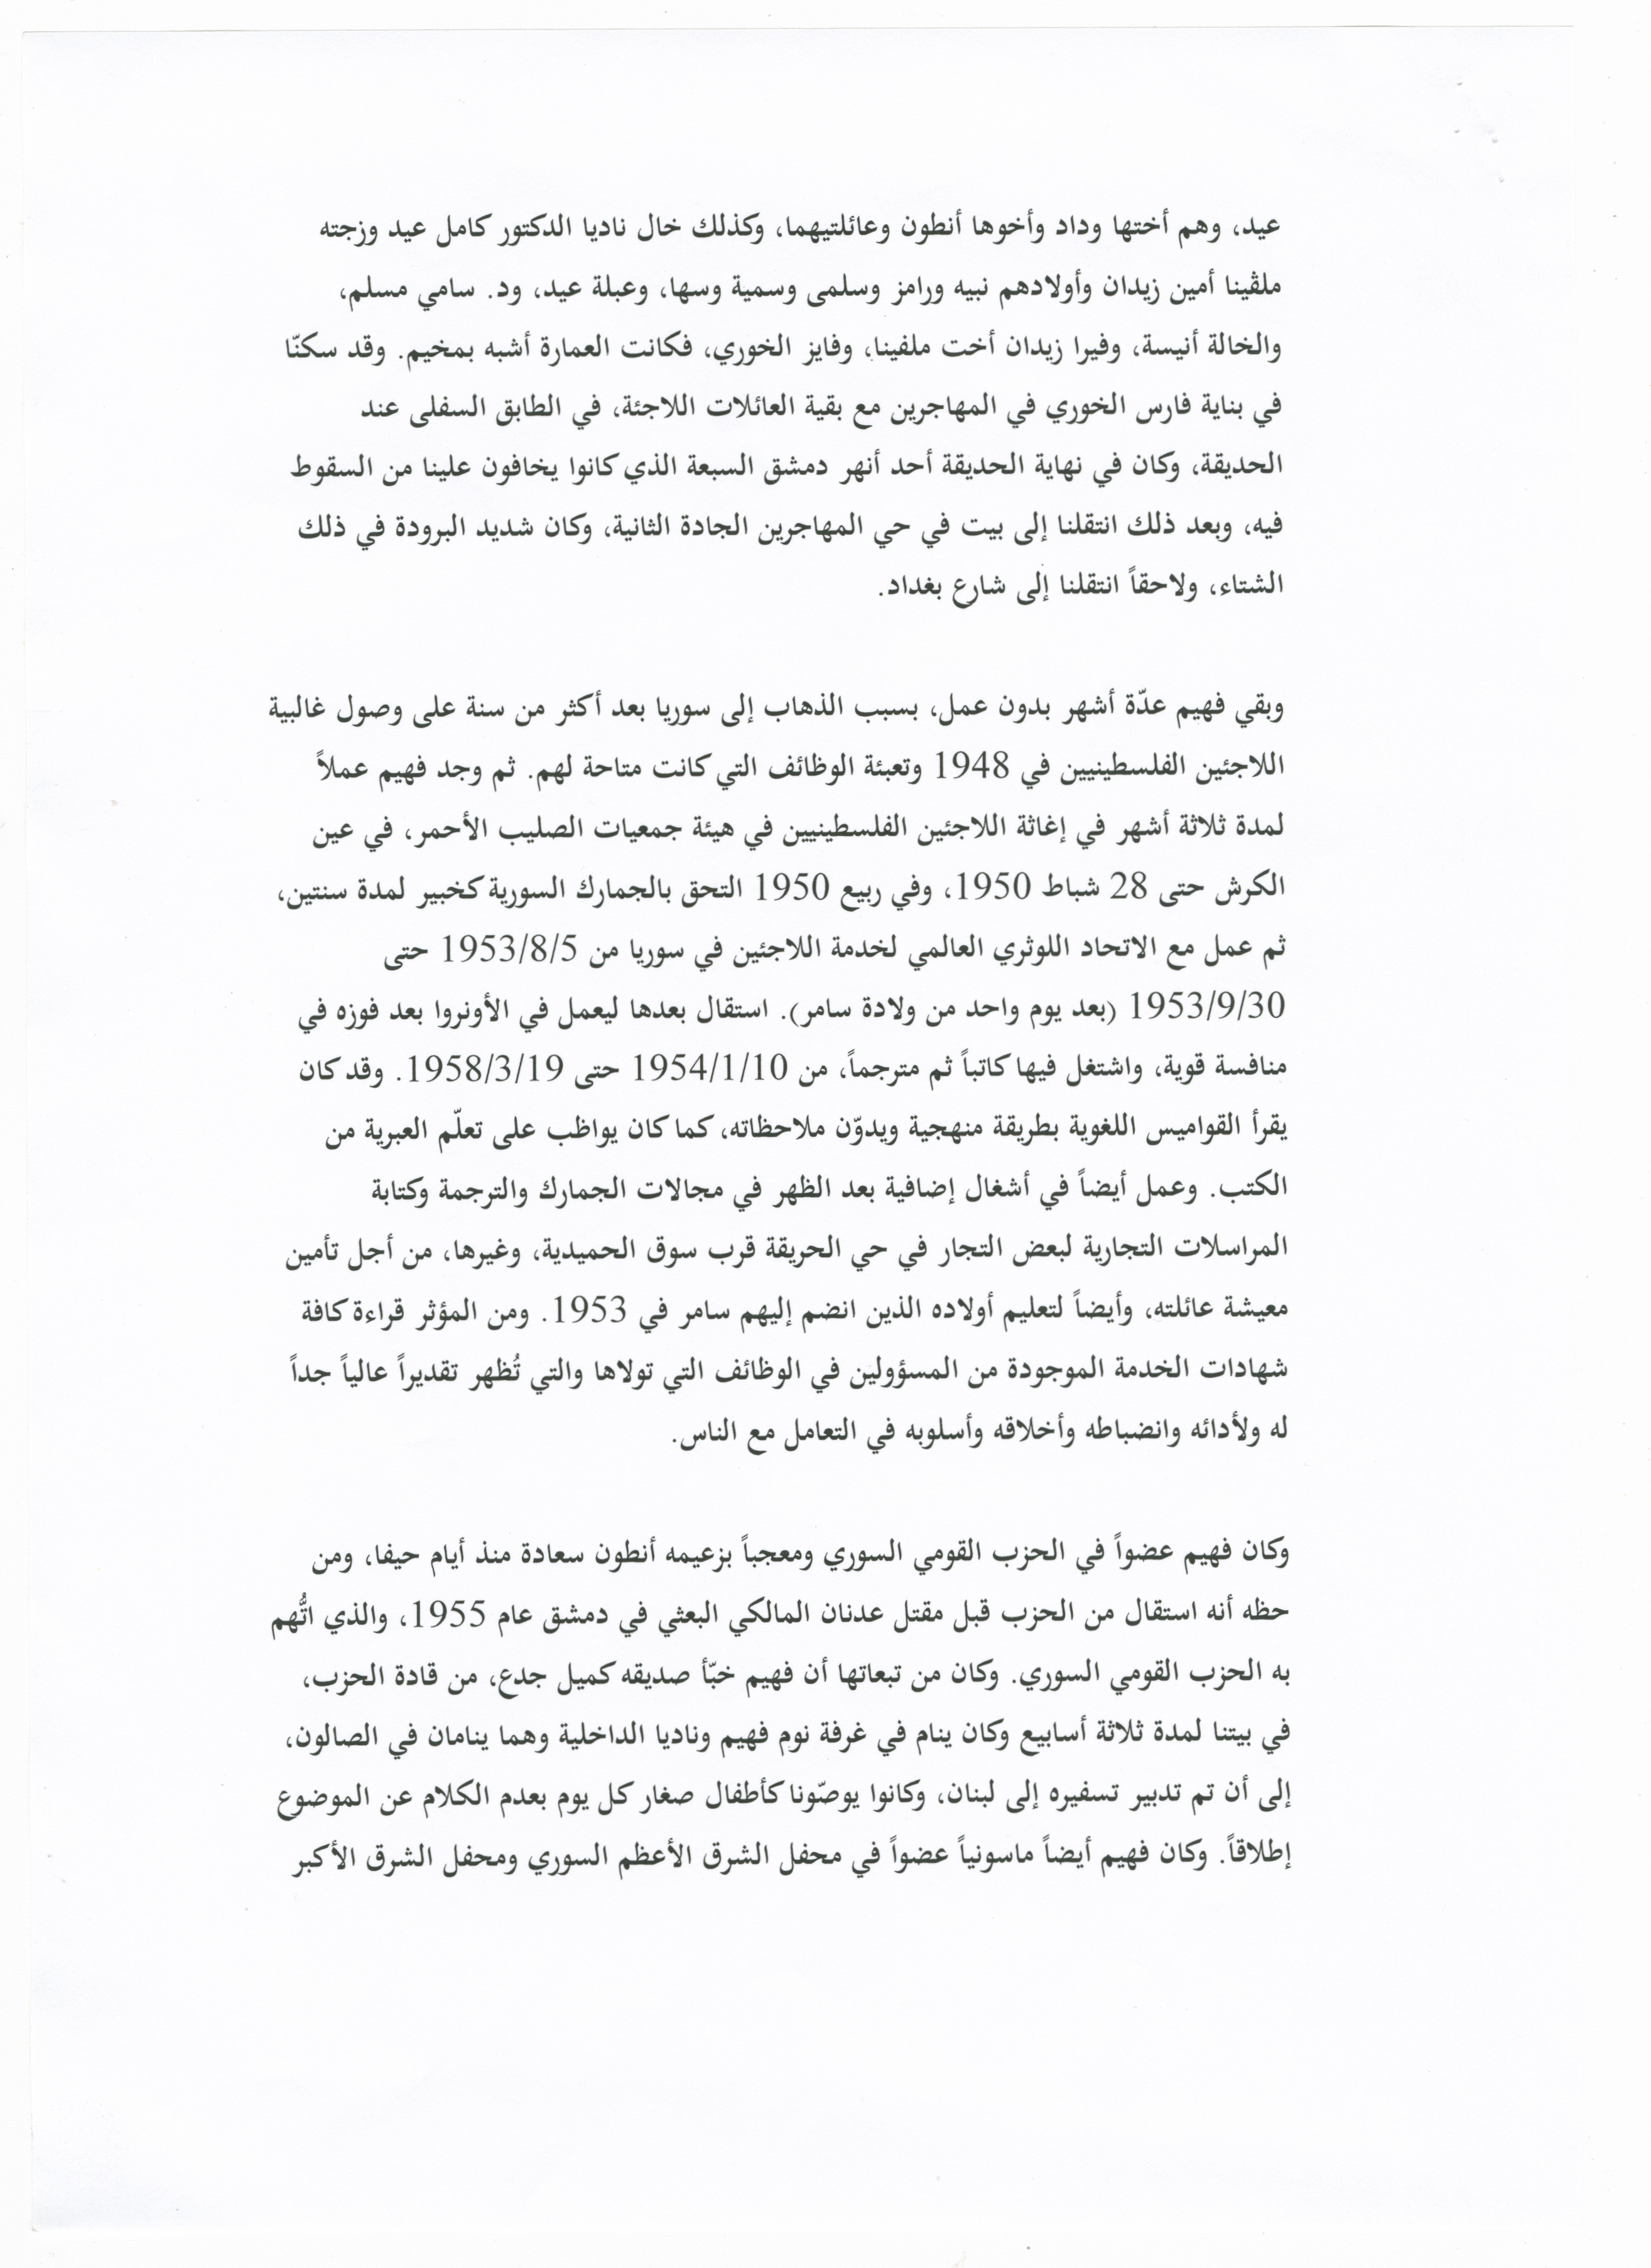 عيد، وهم أختها وداد وأخوها أنطون وعائلتيهما، وكذلك خال ناديا الدكتور كامل عيد وزجته
ملڤينا أمين زيدان وأولادهم نبيه ورامز وسلمى وسمية وسها، وعبلة عيد، ود. سامي مسلم،
والخالة أنيسة، وفيرا زيدان أخت ملفينا، وفايز الخوري، فكانت العمارة أشبه بمخيم. وقد سكنّا
في بناية فارس الخوري في المهاجرين مع بقية العائلات اللاجئة، في الطابق السفلى عند
الحديقة، وكان في نهاية الحديقة أحد أنهر دمشق السبعة الذي كانوا يخافون علينا من السقوط
فيه، وبعد ذلك انتقلنا إلى بيت في حي المهاجرين الجادة الثانية، وكان شديد البرودة في ذلك
الشتاء، ولاحقاً انتقلنا إلى شارع بغداد.
وبقي فهيم عدّة أشهر بدون عمل، بسبب الذهاب إلى سوريا بعد أكثر من سنة على وصول غالبية
اللاجئين الفلسطينيين في 1948 وتعبئة الوظائف التي كانت متاحة لهم. ثم وجد فهيم عملاً
لمدة ثلاثة أشهر في إغاثة اللاجئين الفلسطينيين في هيئة جمعيات الصليب الأحمر، في عين
الكرش حتى 28 شباط 1950، وفي ربيع 1950 التحق بالجمارك السورية كخبير لمدة سنتين،
ثم عمل مع الاتحاد اللوثري العالمي لخدمة اللاجئين في سوريا من 1953/8/5 حتى
1953/9/30 (بعد يوم واحد من ولادة سامر). استقال بعدها ليعمل في الأونروا بعد فوزه في
منافسة قوية، واشتغل فيها كاتباً ثم مترجماً، من 1954/1/10 حتى 1958/3/19. وقد كان
يقرأ القواميس اللغوية بطريقة منهجية ويدوّن ملاحظاته، كما كان يواظب على تعلّم العبرية من
الكتب. وعمل أيضاً في أشغال إضافية بعد الظهر في مجالات الجمارك والترجمة وكتابة
المراسلات التجارية لبعض التجار في حي الحريقة قرب سوق الحميدية، وغيرها، من أجل تأمين
معيشة عائلته، وأيضاً لتعليم أولاده الذين انضم إليهم سامر في 1953. ومن المؤثر قراءة كافة
شهادات الخدمة الموجودة من المسؤولين في الوظائف التي تولاها والتي تُظهر تقديراً عالياً جداً
له ولأدائه وانضباطه وأخلاقه وأسلوبه في التعامل مع الناس.
وكان فهيم عضواً في الحزب القومي السوري ومعجباً بزعيمه أنطون سعادة منذ أيام حيفا، ومن
حظه أنه استقال من الحزب قبل مقتل عدنان المالكي البعثي في دمشق عام 1955، والذي اتُّهم
به الحزب القومي السوري. وكان من تبعاتها أن فهيم خبّأ صديقه كميل جدع، من قادة الحزب،
في بيتنا لمدة ثلاثة أسابيع وكان ينام في غرفة نوم فهيم وناديا الداخلية وهما ينامان في الصالون،
إلى أن تم تدبير تسفيره إلى لبنان، وكانوا يوصّونا كأطفال صغار كل يوم بعدم الكلام عن الموضوع
إطلاقاً. وكان فهيم أيضاً ماسونياً عضواً في محفل الشرق الأعظم السوري ومحفل الشرق الأكبر